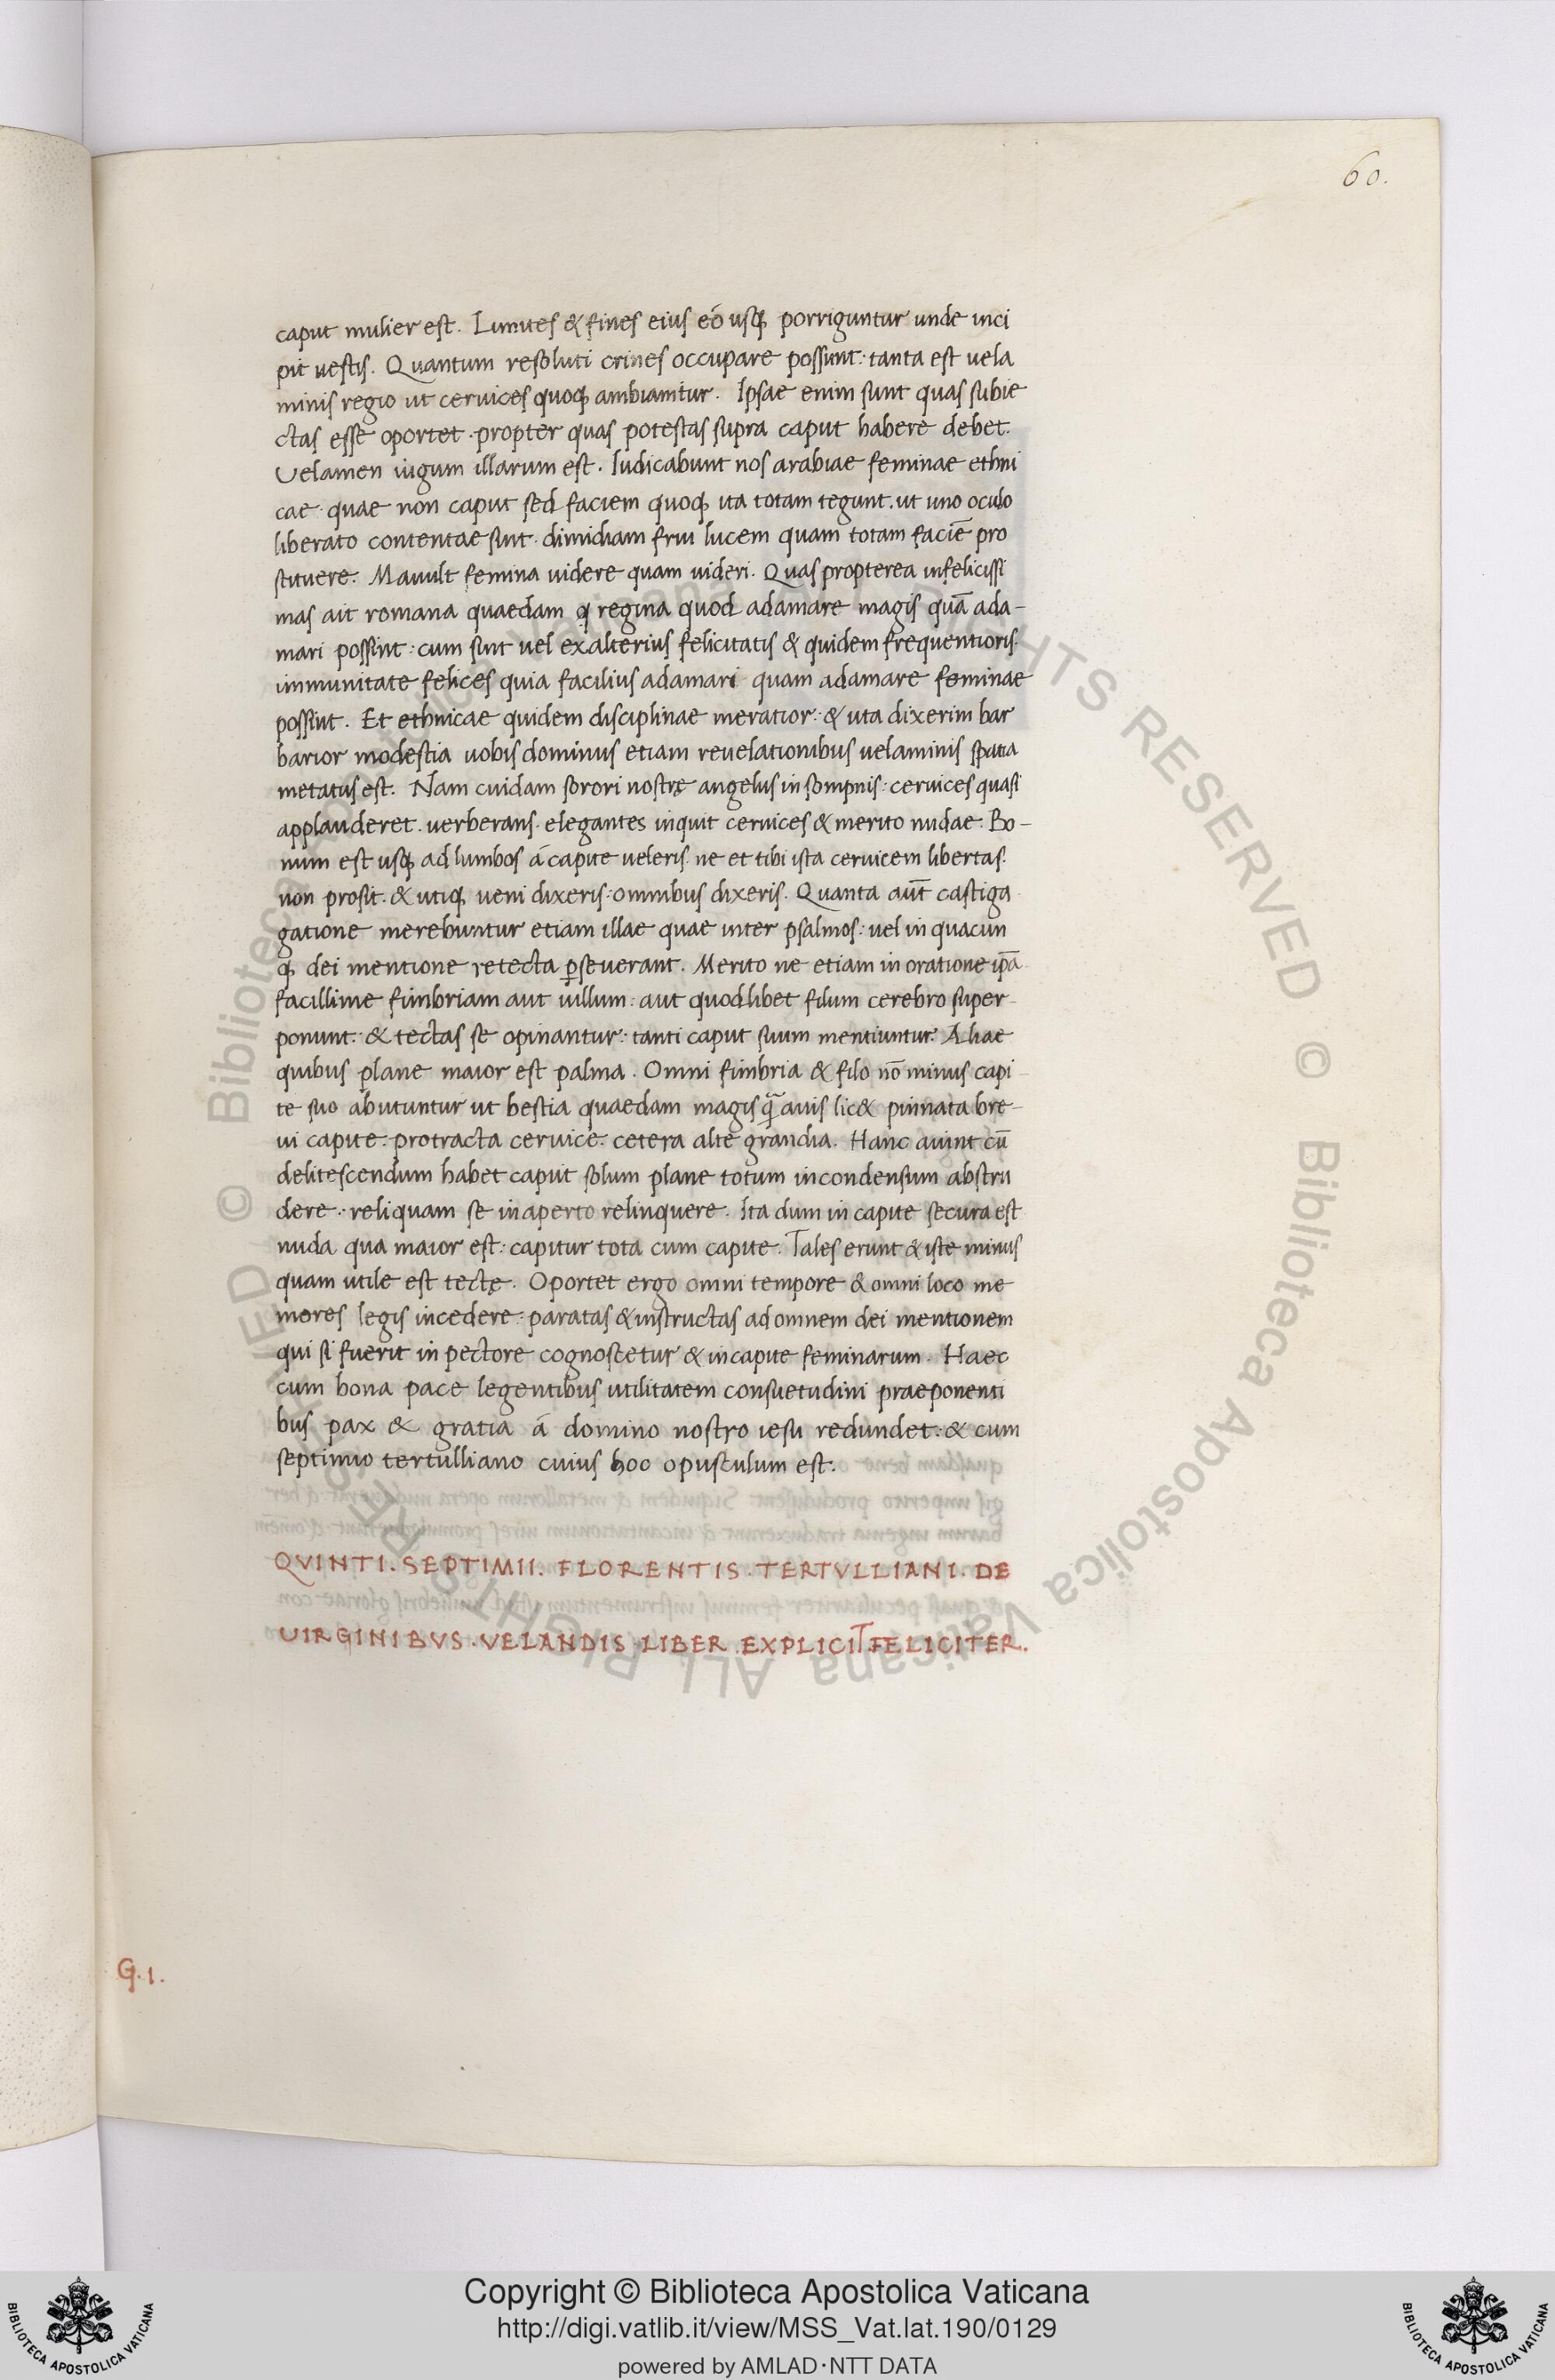 60.
caput mulier est. Limites & fines eius eó usq; porriguntur unde inci
pit uestis. Quantum resoluti crines occupare possunt: tanta est uela
minis regio ut ceruices quoq; ambiantur. Ipsae enim sunt quas subie
ctas esse oportet. propter quas potestas supra caput habere debet.
Uelamen iugum illarum est. Iudicabunt nos arabiae feminae ethni
cae. quae non caput sed faciem quoq; ita totam tegunt. ut uno oculo
liberato contentae sint. dimidiam frui lucem quam totam faciē pro
stituere. Mauult femina uidere quam uideri. Quas propterea infelicissi
mas ait romana quaedam regina quod adamare magis quā ada-
mari possint: cum sint uel ex alterius felicitatis & quidem frequentioris.
immunitate felices quia facilius adamari quam adamare feminae
possint. Et ethnicae quidem disciplinae meratior: & uta dixerim bar
barior modestia uobis dominus etiam reuelationibus uelaminis spatia
metatus est. Nam cuidam sorori nostrę angelus in sompnis: ceruices quasi
applauderet. uerberans. elegantes inquit ceruices & merito nudae: Bo-
num est usq; ad lumbos á capite ueleris. ne et tibi ista ceruicem libertas.
non prosit. & utiq; ueni dixeris: omnibus dixeris. Quanta aūt castiga
gatione merebuntur etiam illae quae inter psalmos: uel in quacun
q; dei mentione retecta ꝑseuerant. Merito ne etiam in oratione ip̄a
facillime fimbriam aut uillum: aut quodlibet filum cerebro super-
ponunt: & tectas se opinantur: tanti caput suum mentiuntur. Aliae
quibus plane maior est palma. Omni fimbria & filo nō minus capi-
te suo abutuntur ut bestia quaedam magis q̄ auis lic& pinnata bre-
ui capite. protracta ceruice. cetera alte grandia. Hanc aiunt cū
delitescendum habet caput solum plane totum in condensum abstru
dere. reliquam se in aperto relinquere. Ita dum in capite secura est
nuda qua maior est: capitur tota cum capite. Tales erunt & iste minus
quam utile est tectę. Oportet ergo omni tempore & omni loco me
mores legis incedere: paratas & instructas ad omnem dei mentionem
qui si fuerit in pectore cognoscetur & in capite feminarum. Haec
cum bona pace legentibus utilitatem consuetudini praeponenti
bus pax & gratia á domino nostro iesu redundet: & cum
septimio tertulliano cuius hoc opusculum est.
QVINTI. SEPTIMII. FLORENTIS. TERTVLLIANI. DE
UIRGINIBVS. VELANDIS. LIBER. EXPLICIT. FELICITER.
G.1.
© Biblioteca Apostolica Vaticana ALL RIGHTS RESERVED © Biblioteca Apostolica Vaticana ALL RIGHTS RESERVED
Copyright © Biblioteca Apostolica Vaticana
http://digi.vatlib.it/view/MSS_Vat.lat.190/0129
powered by AMLAD·NTT DATA
BIBLIOTECA APOSTOLICA VATICANA
BIBLIOTECA APOSTOLICA VATICANA